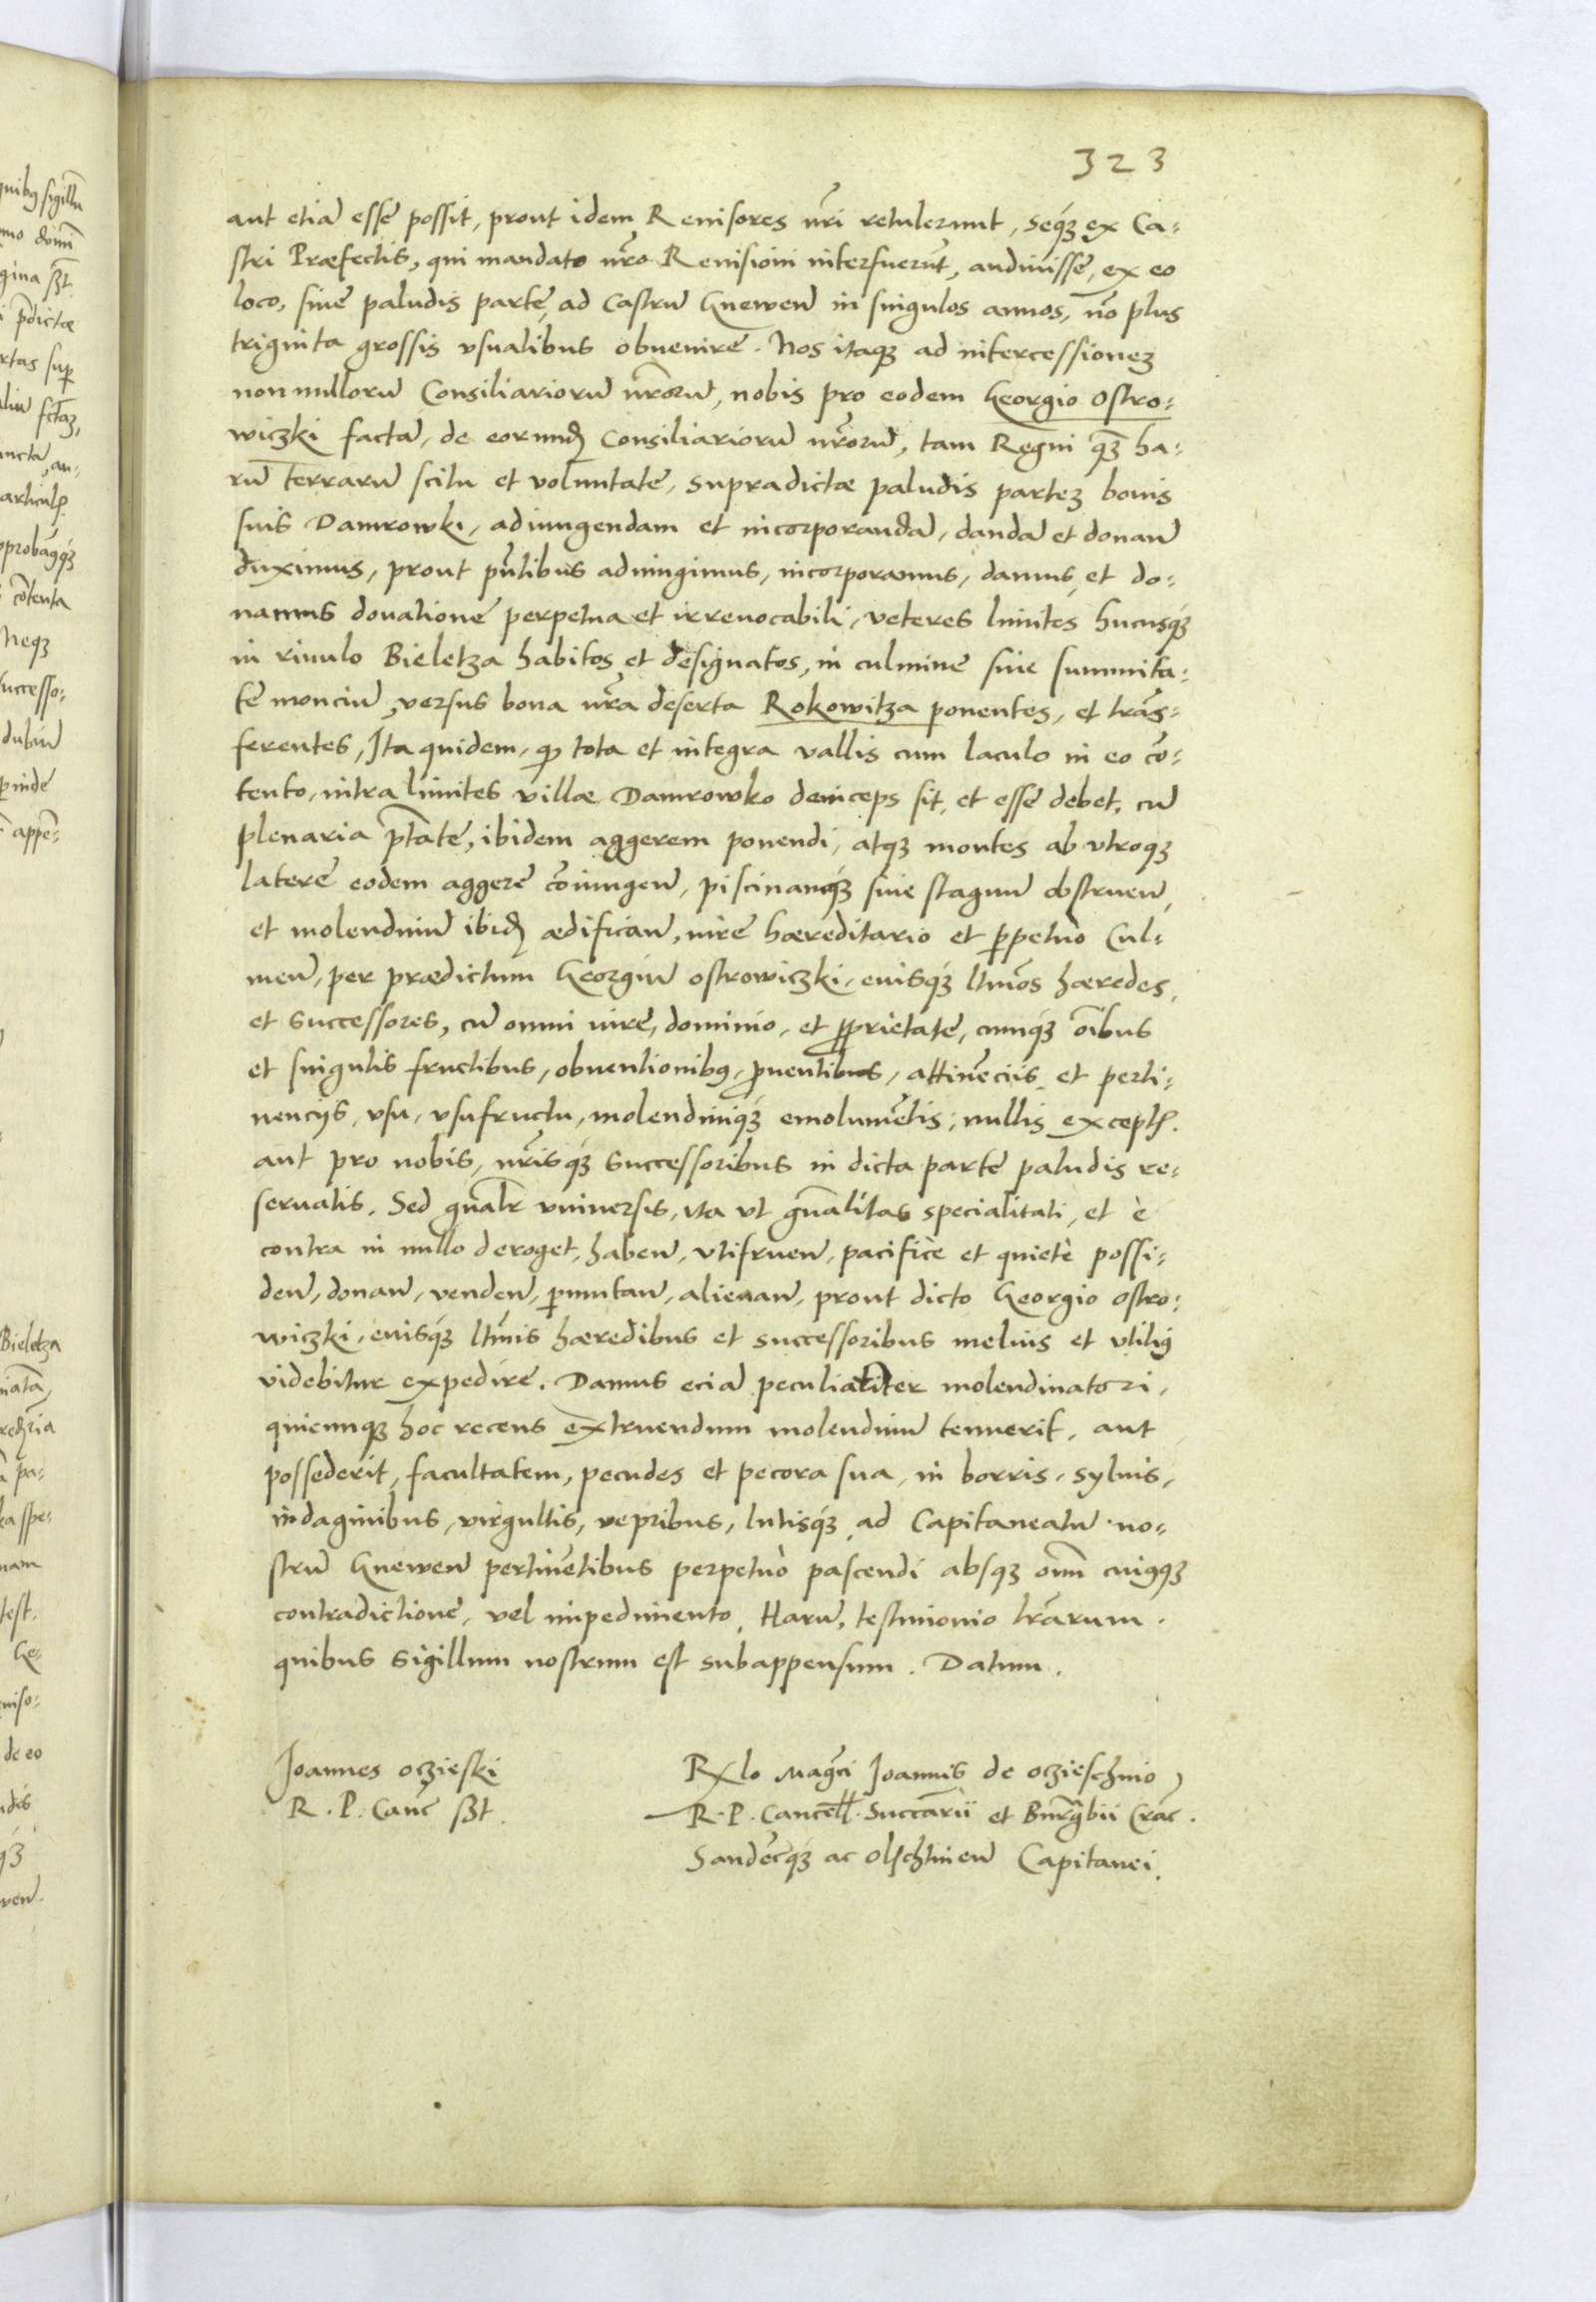 323
aut etiā esse possit, prout idem Reuisores nr̄i retulerunt, seq́ꝫ ex Ca-
stri Præfectis, qui mandato nr̄o Reuisioni interfuerūt, audiuisse, ex eo
loco, siue paludis parte, ad Castrū Gnewen̄ in singulos annos, nō plus
triginta grossis vsualibus obuenire. Nos itaqꝫ ad intercessioneꝫ
nonnullorū Consiliariorū nr̄orū, nobis pro eodem Georgio Ostro-
wiczki factā, de eorundꝫ Consiliariorū nr̄orū, tam Regni qꝫ ha-
rū terrarū scitu et voluntate, supradictæ paludis parteꝫ bonis
suis Damrowki, adiungendam et incorporandā, dandā et donan̄
duximus, prout pn̄tibus adiungimus, incorporamus, damus et do-
namus donatione perpetua et irreuocabili, veteres limites hucusq́ꝫ
in riuulo Bieletza habitos et designatos, in culmine siue summita-
te monciū, versus bona nr̄a deserta Rokowitza ponentes, et trās-
ferentes, Ita quidem, ꝙ tota et integra vallis cum laculo in eo cō-
tento, intra limites villæ Damrowko deinceps sit, et esse debet, cū
plenaria ptāte, ibidem aggerem ponendi, atqꝫ montes ab vtroqꝫ
latere eodem aggere cōiungen̄, piscinamq́ꝫ siue stagnū obstruen̄,
et molendinū ibidꝫ ædifican̄, iure hæreditario et ꝑpetuò Cul-
men̄, per prædictum Georgiū Ostrowiczki, eiusq́ꝫ ltīmos hæredes,
et successores, cū omni iure, dominio, et ꝓprietate, cumq́ꝫ oībus
et singulis fructibus, obuentionibꝰ, ꝓuentibus, attinēciis et perti-
nencijs, vsu, vsufructu, molendiniq́ꝫ emolumētis, nullis exceptꝭ.
aut pro nobis, nr̄isq́ꝫ successoribus in dicta parte paludis re-
seruatis. Sed gnālr̄ vniuersis, ita vt gnālitas specialitati, et è
contra in nullo deroget, haben̄, vtifruen̄, pacificè et quietè possi-
den̄, donan̄, venden̄, ꝑmutan̄, alienan̄, prout dicto Georgio Ostro-
wiczki, eiusq́ꝫ ltīmis hæredibus et successoribus melius et vtiliꝰ
videbitur expedire. Damus eciā peculiariter molendinatori,
quicumqꝫ hoc recens extruendum molendinū tenuerit, aut
possederit, facultatem, pecudes et pecora sua, in borris, syluis,
indaginibus, virgultis, vepribus, lutisq́ꝫ ad Capitaneatū no-
strū Gnewen̄ pertinētibus perpetuò pascendi absqꝫ omī cuiꝰqꝫ
contradictione, vel impedimento. Harū, testimonio lr̄arum.
quibus sigillum nostrum est subappensum. Datum.
Joannes Oczieski
R. P. Canc̄ sꝫt.
Rxlo Magcī Joannis de Oczieschino
R. P. Cancell. Succarii et Burgrābii Crāc.
Sandēcq́ꝫ ac Olschtinen̄ Capitanei.